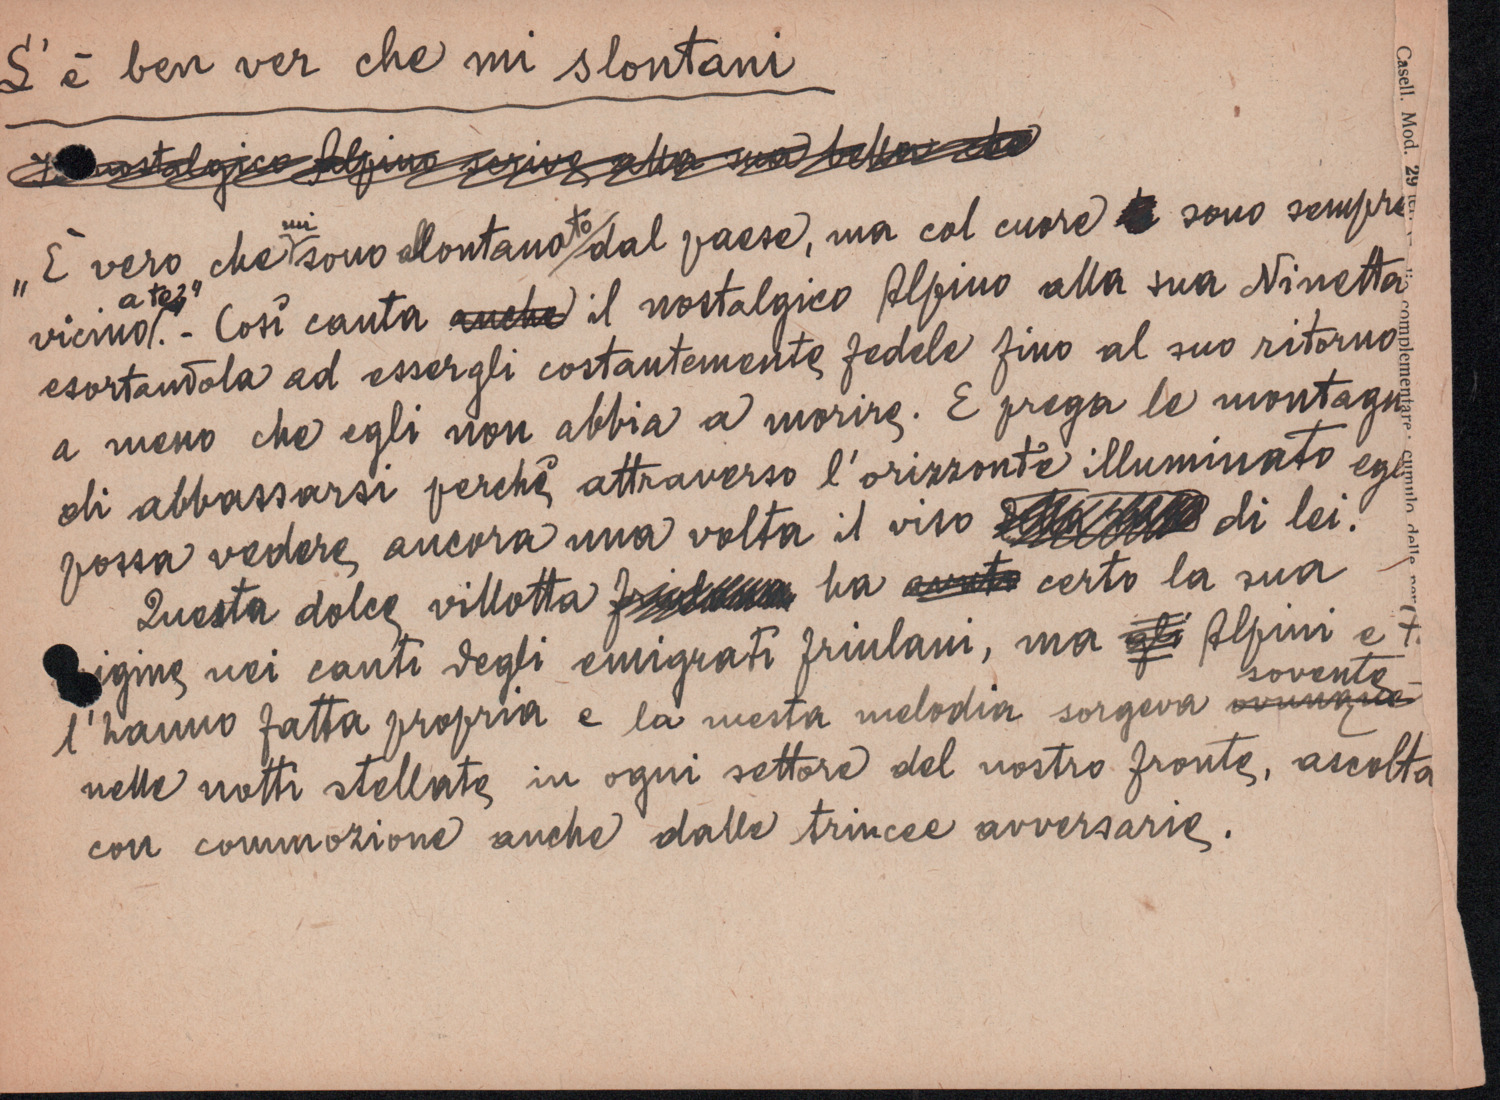 L'è ben ver che mi slontani
nostalgico Alpino scrive alla sua bella che
„È vero che mi sono allontanato dal paese, ma col cuore sono sempre
vicino a te!" - Così canta anche il nostalgico Alpino alla sua Ninetta
esortandola ad essergli costantemente fedele fino al suo ritorno
a meno che egli non abbia a morire. E prega le montagn
di abbassarsi perchè attraverso l'orizzonte illuminato egl
possa vedere ancora una volta il viso di lei.
Questa dolce villotta friulana ha avuto certo la sua
igine nei canti degli emigrati friulani, ma gli Alpini e
l'hanno fatta propria e la mesta melodia sorgeva ovunque sovente
nelle notti stellate in ogni settore del nostro fronte, ascolta
con commozione anche dalle trincee avversarie.
Casell. Mod. 29 complementare: cumulo delle per